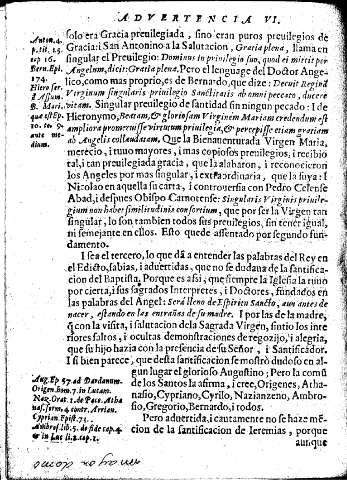 ADVERTENCIA VI.
solo era Gracia preuilegiada, sino eran puros preuilegios de
Gracia: San Antonino a la Salutacion, Gratia plena, llama en
singular el Preuilegio: Dominus in priuilegiu suo, quod ei mittit per
Angelum, dicit: Gratia plena. Pero el lenguage del Doctor Ange-
lico, como mas propio, es de Bernardo, que dize: Decuit Reginã
Virginum singularis priuilegio Sanctitatis ab omni peccato, ducere
vitam. Singular preuilegio de santidad sin ningun pecado: I de
Hieronymo, Beatam, & gloriosam Virginem Mariam credendum est
ampliora promeruisse virtutum priuilegia, & percepisse etiam gratiam
ab Angelis collaudatam. Que la Bienauenturada Virgen Maria,
merecio, i tuuo mayores, i mas copiosos preuilegios, i recibio
tal, i tan preuilegiada gracia, que la alabaron, i reconocieron
los Angeles por mas singular, i extraordinaria, que la suya: I
Nicolao en aquella su carta, i controuersia con Pedro Celense
Abad, i despues Obispo Carnotense: Singularis Virginis priuile-
gium non habet similitudinis consortium, que por ser la Virgen tan
singular, lo son tambien todos sus preuilegios, sin tener igual,
ni semejante en ellos. Esto quede assentado por segundo fun-
damento.
I sea el tercero, lo que dà a entender las palabras del Rey en
el Edicto, sabias, i aduertidas, que no se duda de la santifica-
cion del Baptista. Porque es assi, que siempre la Iglesia la tuuo
por cierta, i sus sagrados Interpretes, i Doctores, fundados en
las palabras del Angel: Serà lleno de Espiritu Sancto, aun antes de
nacer, estando en las entrañas de su madre. I por las de la madre,
q̃ con la visita, i salutacion dela Sagrada Virgen, sintio los inte-
riores saltos, i ocultas demonstraciones de regozijo, i alegria,
que su hijo hazia con la presencia de su Señor, i Santificador.
I si bien parece, que desta santificacion se mostrò dudoso en al-
gun lugar el glorioso Augustino; Pero la comũ
de los Santos la afirma, i cree, Origenes, Atha-
nasio, Cypriano, Cyrilo, Nazianzeno, Ambro-
sio, Gregorio, Bernardo, i todos.
Pero aduertida, i cautamente no se haze mẽ-
cion de la santificacion de Ieremias, porque
aunque
Anton. 4.
p. tit. 15.
cap 16.
Bern. Epi.
174.
Hiero ser.
d Assum.
B. Mari.
que est Ep.
10. to. 9.
ante me-
dium.
Aug. Ep 57. ad Dardanum.
Origen. hom. 7. in Lucam.
Naz. Orat. 1. de Pace. Atha
nas. serm. 4. contr. Arrian.
Cyprian Epist. 71.
Ambros. lib. 5. de fide cap. 4
& in Luc li. 2. cap. 1.